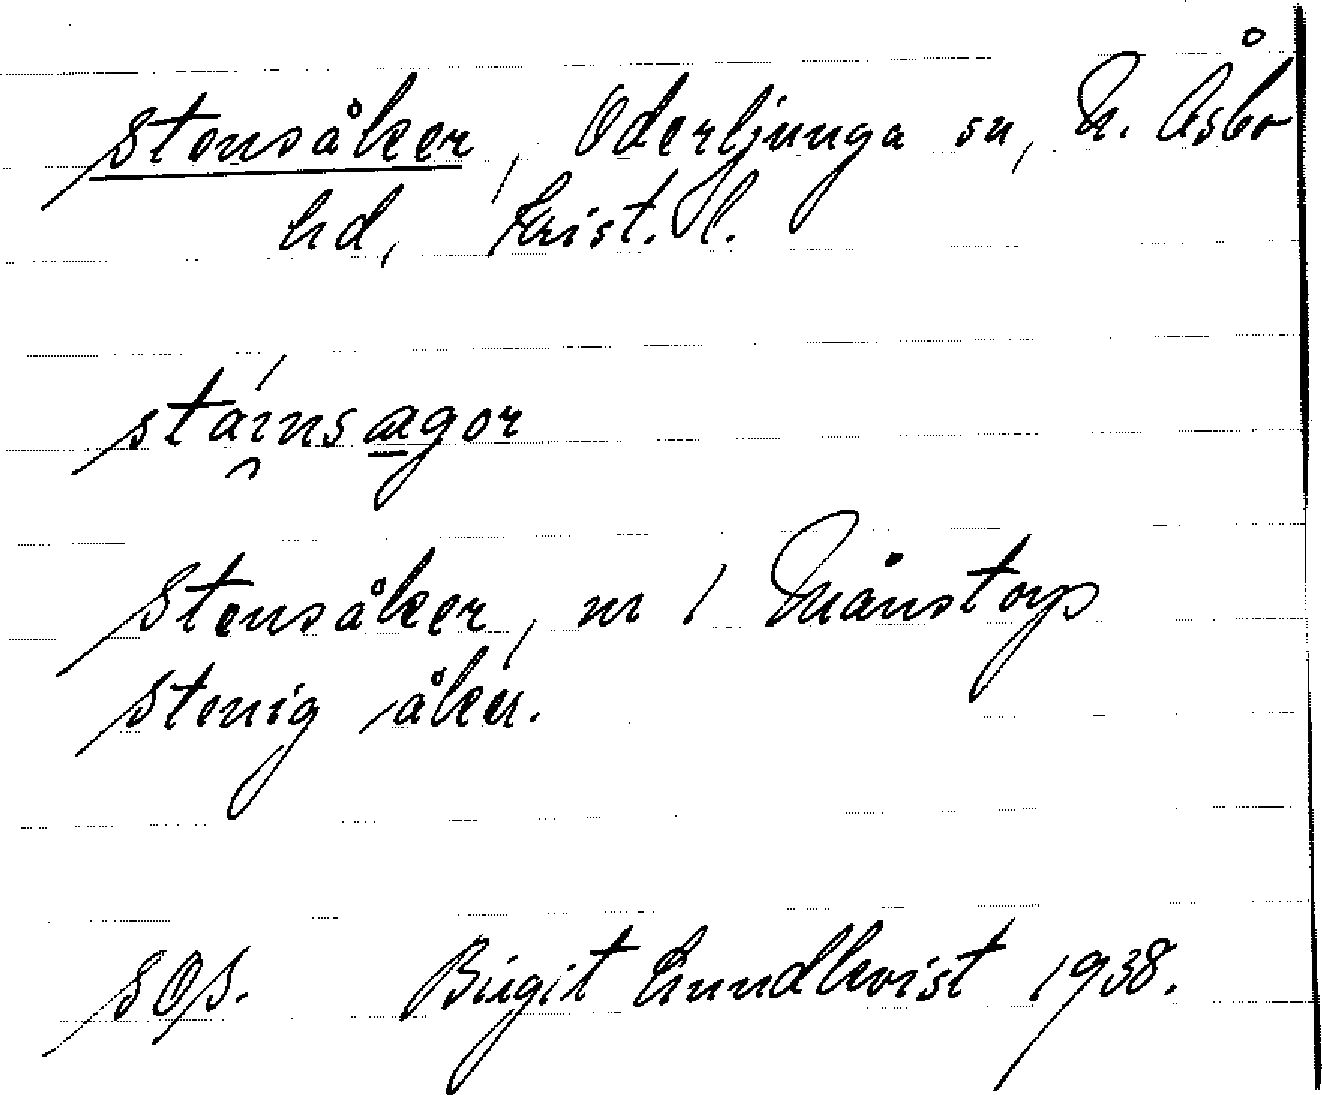 Stensåker, Oderljunga sn, N. Åsbo
hd, Krist. l.
stáinsagor
Stensåker, nr 1 Månstorp
stenig åker.
SOS. Birgit Lundkvist 1938.